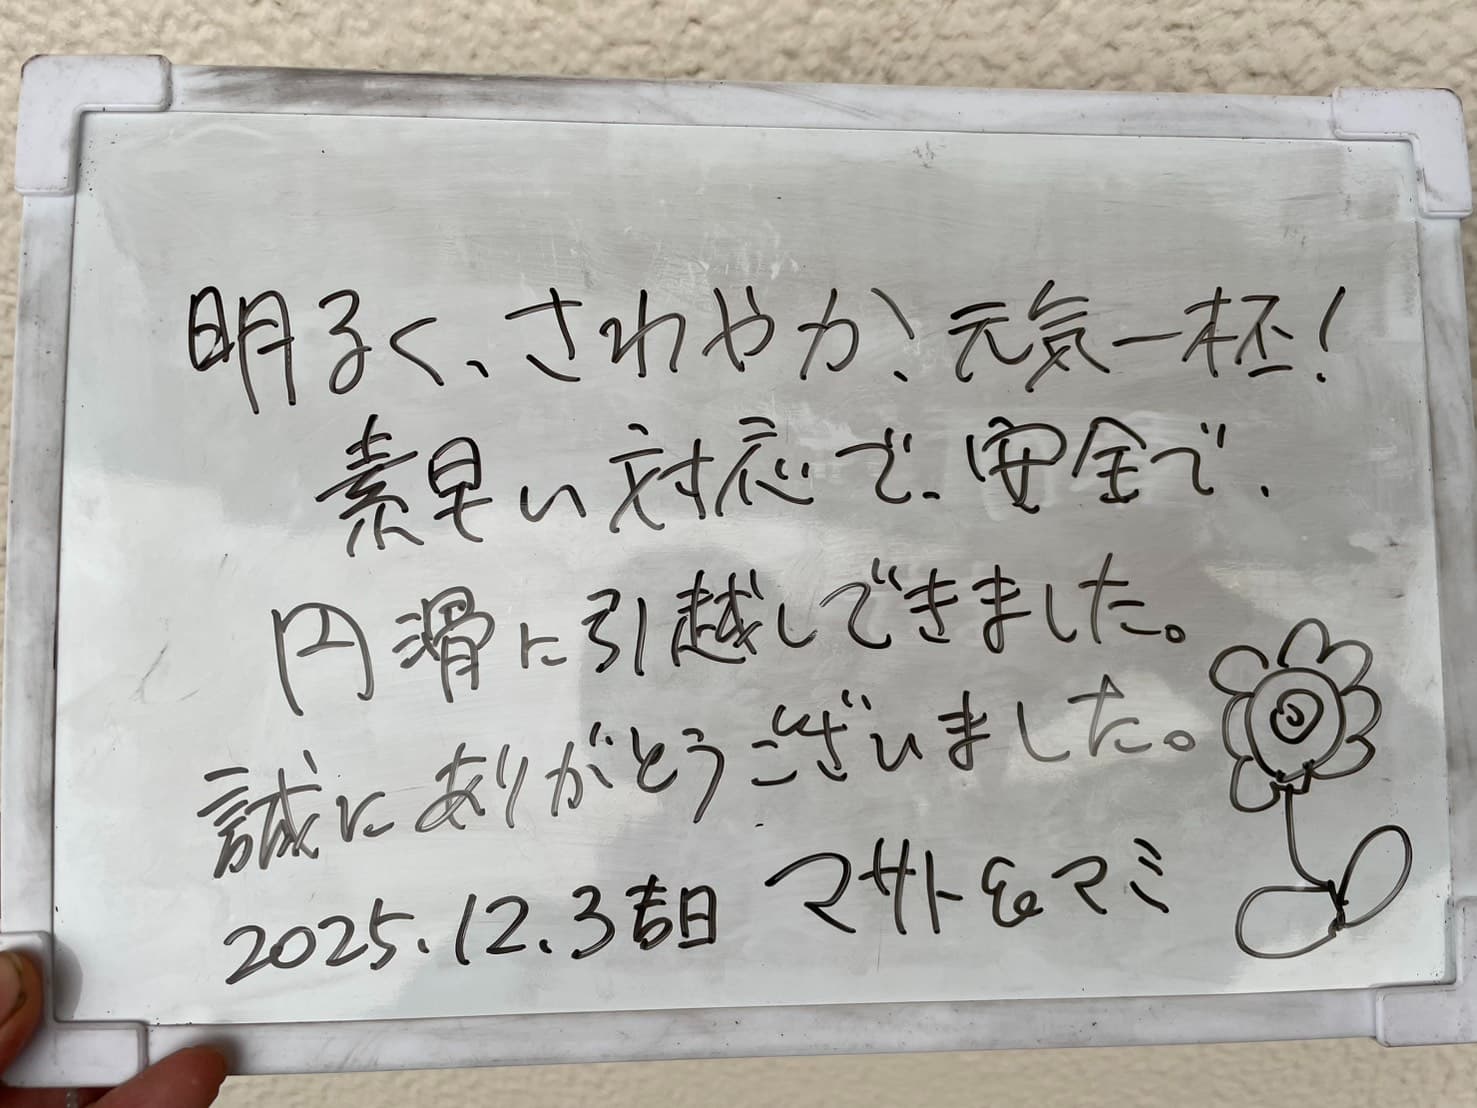 明るく、さわやか、元気一杯!
素早い対応で、安全で、
円滑に引越しできました。
誠にありがとうございました。
2025.12.3吉日 マサト&マミ